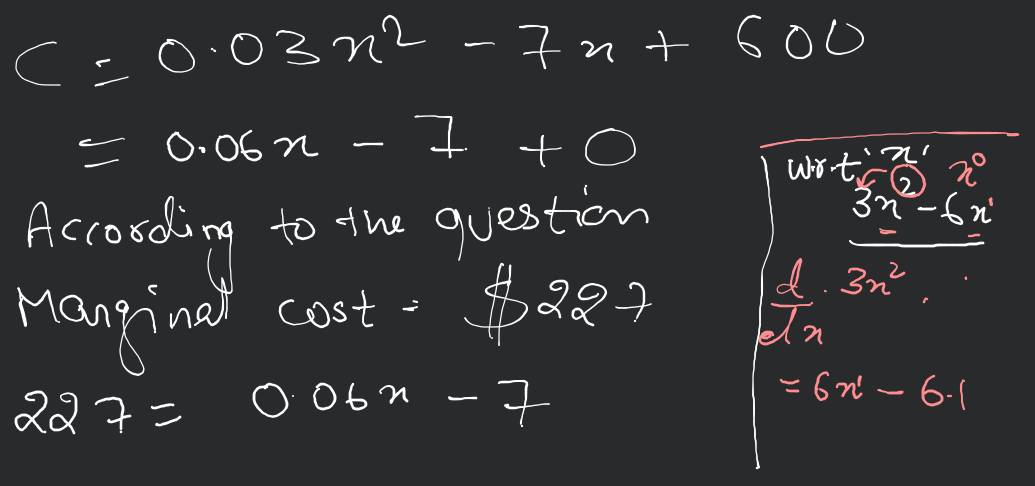 C = 0.03x² - 7x + 600
= 0.06x - 7 + 0
According to the question
Marginal cost = $227
227 = 0.06x - 7
w.r.t 'x' x⁰
3x² - 6x¹
d/dx . 3x² .
= 6x¹ - 6.1